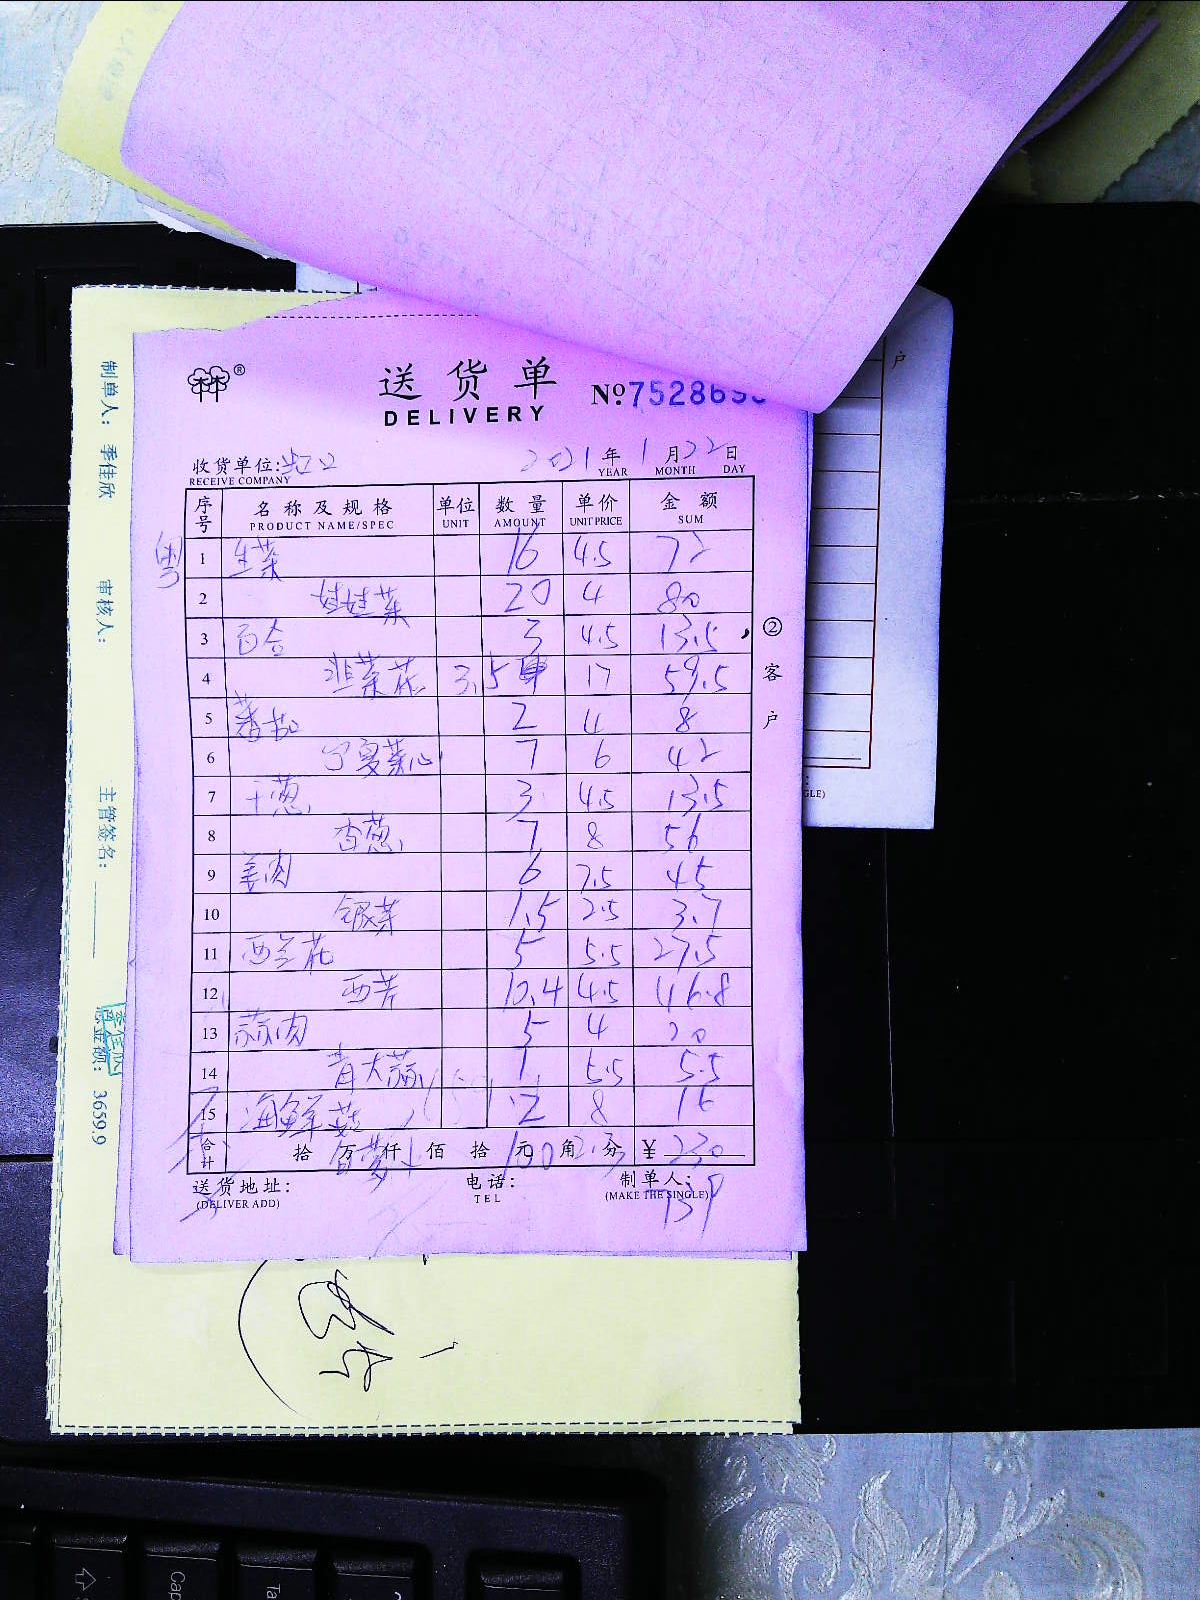 送货单
DELIVERY
№ 752869
收货单位: 虹口 2021年1月22日
RECEIVE COMPANY YEAR MONTH DAY
序号 名称及规格 单位 数量 单价 金额
PRODUCT NAME/SPEC UNIT AMOUNT UNIT PRICE SUM
粤
1 生菜 16 4.5 72
2 娃娃菜 20 4 80
3 百合 3 4.5 13.5
4 韭菜花 3.5 17 59.5
5 蕃茄 2 4 8
6 宁夏菜心 7 6 42
7 干葱 3 4.5 13.5
8 香葱 7 8 56
9 姜肉 6 7.5 45
10 银芽 1.5 2.5 3.7
11 西兰花 5 5.5 27.5
12 西芹 10.4 4.5 46.8
13 蒜肉 5 4 20
14 青大蒜 1 5.5 5.5
15 海鲜菇 2 8 16
合计 拾 万 仟 佰 拾 元 角 分 ¥ 230
100 2.3
送货地址: 电话: 制单人:
(DELIVER ADD) TEL (MAKE THE SINGLE)
739
② 客户
制单人: 季佳欣
审核人:
主管签名:
总金额: 3659.9
季佳欣
户
GLE)
Cap
Ta